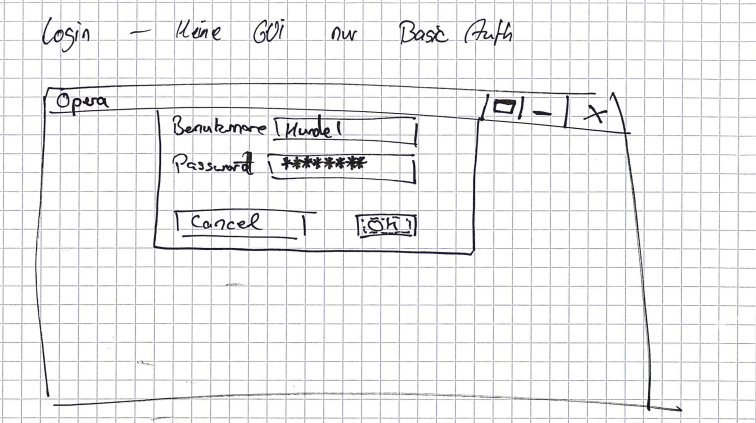 Login – Keine GUI nur Basic Auth
Opera
Benutzername Hunde1
Password ********
Cancel OK